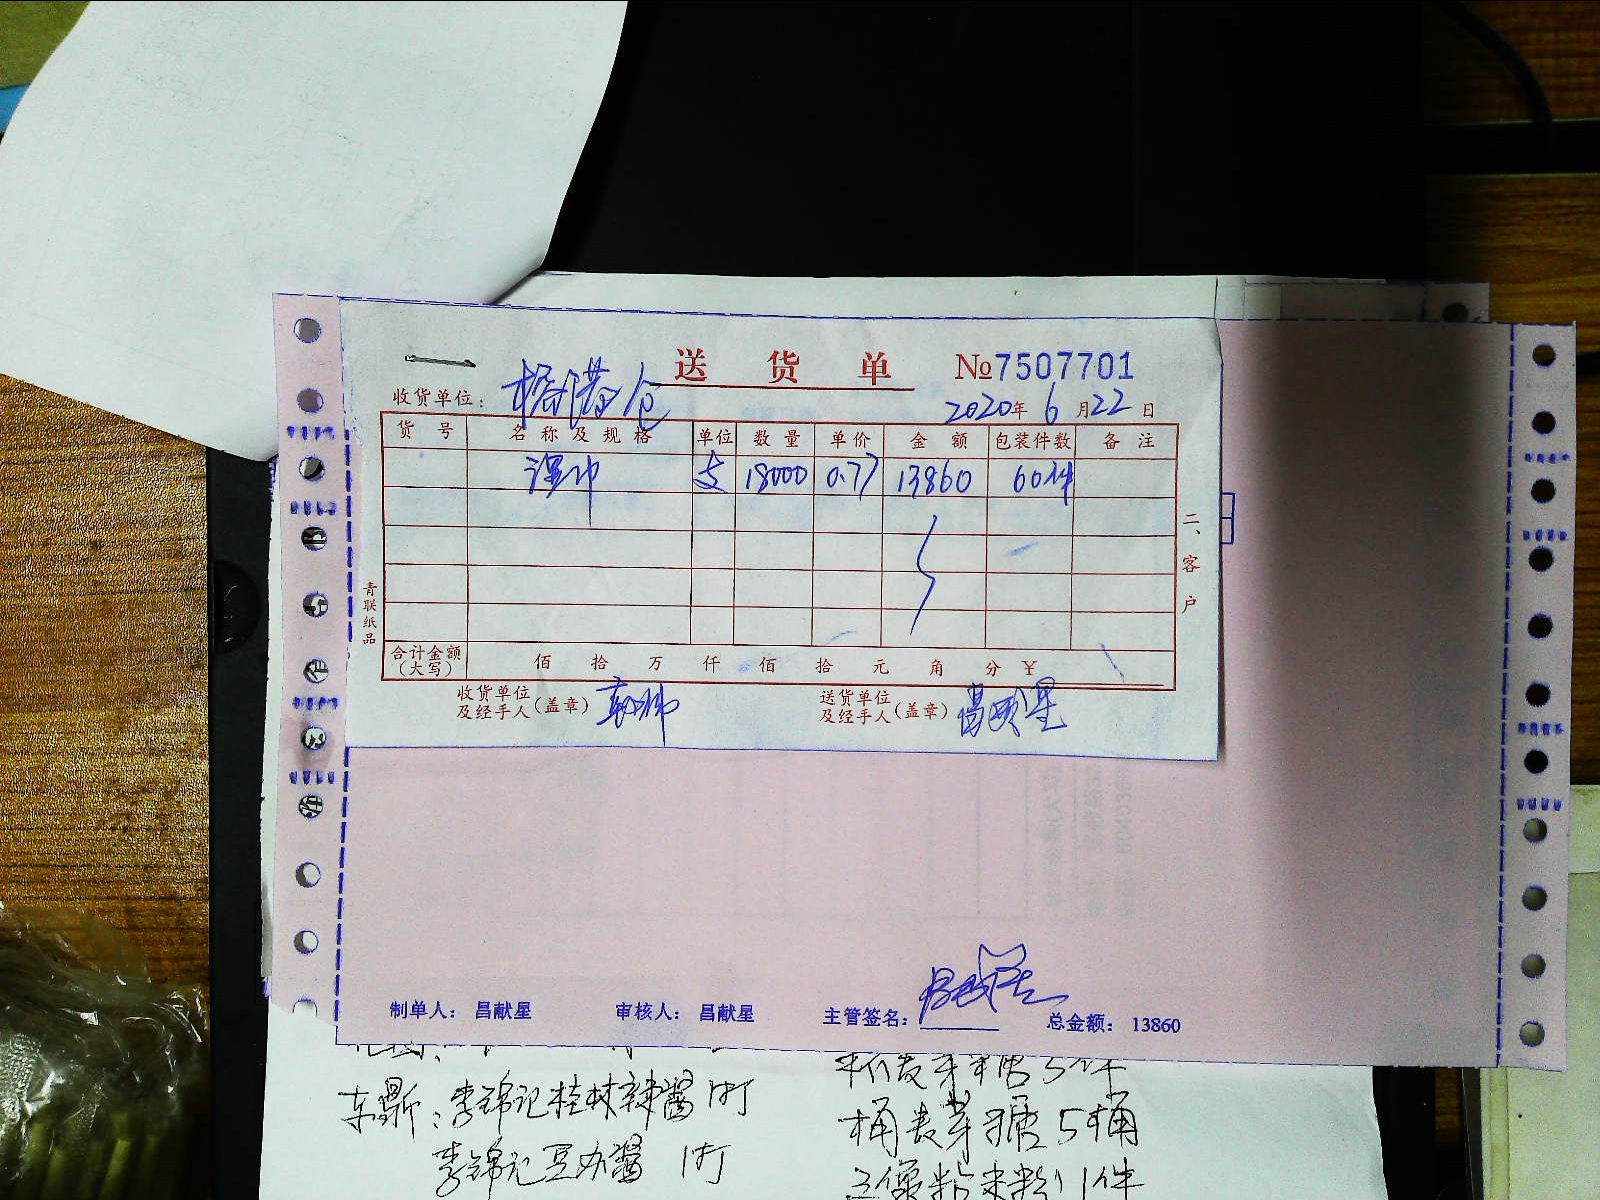 送货单 №7507701
收货单位：
2020年6月22日
货号 名称及规格 单位 数量 单价 金额 包装件数 备注
湿巾 支 18000 0.77 13860 60件
二、客户
青联纸品
合计金额（大写） 佰 拾 万 仟 佰 拾 元 角 分 ￥
收货单位及经手人（盖章）
送货单位及经手人（盖章） 昌献星
制单人： 昌献星 审核人： 昌献星 主管签名： 昌献星 总金额： 13860
东鼎：李锦记桂林辣酱1件
李锦记豆瓣酱 1件
桶麦芽糖5桶